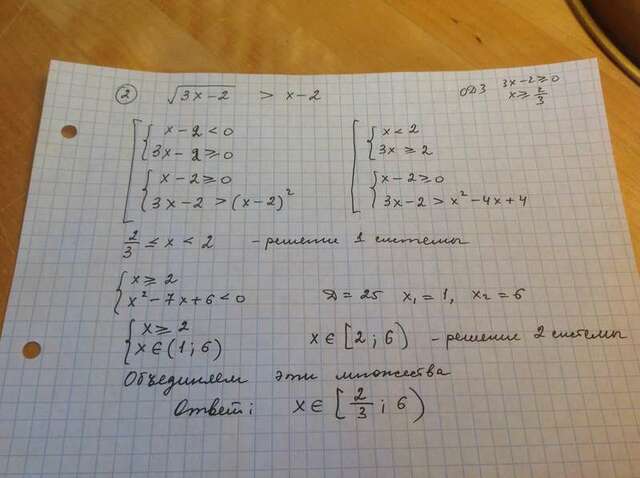 ② √3x-2 > x-2 ОДЗ 3x-2≥0
x≥2/3
[ { x-2<0 [ { x<2
3x-2≥0 3x≥2
{ x-2≥0 { x-2≥0
3x-2>(x-2)² 3x-2>x²-4x+4
2/3 ≤ x < 2 - решение 1 системы
{ x≥2
x²-7x+6<0 Д=25 x₁=1, x₂=6
{ x≥2
x∈(1;6) x∈[2;6) - решение 2 системы
Объединяем эти множества
Ответ: x∈[2/3;6)